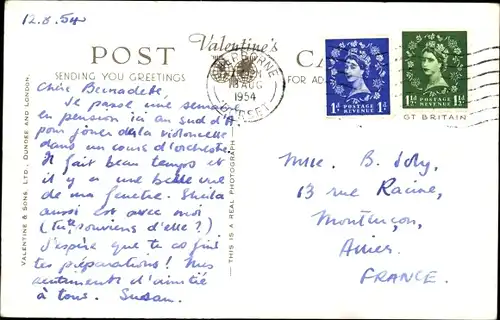 12.8.54
POST
Valentine's
CA
SENDING YOU GREETINGS
FOR AD
SHERBORNE
18 AUG
1954
DORSET
1D POSTAGE REVENUE 1D
1½D POSTAGE REVENUE 1½D
GT BRITAIN
VALENTINE & SONS, LTD., DUNDEE AND LONDON.
THIS IS A REAL PHOTOGRAPH
Chère Bernadette,
Je passe une semaine
en pension ici au sud d'A
pour jouer de la violoncelle
dans un cours d'orchestre.
Il fait beau temps et
il y a une belle vue
de ma fenetre. Sheila
aussi est avec moi
(tu te souviens d'elle?)
J'espère que tu as fini
tes préparations! Mes
sentiments d'amitié
à tous. Susan.
Mlle. B. Joly,
13 rue Racine,
Montluçon,
Allier.
FRANCE.